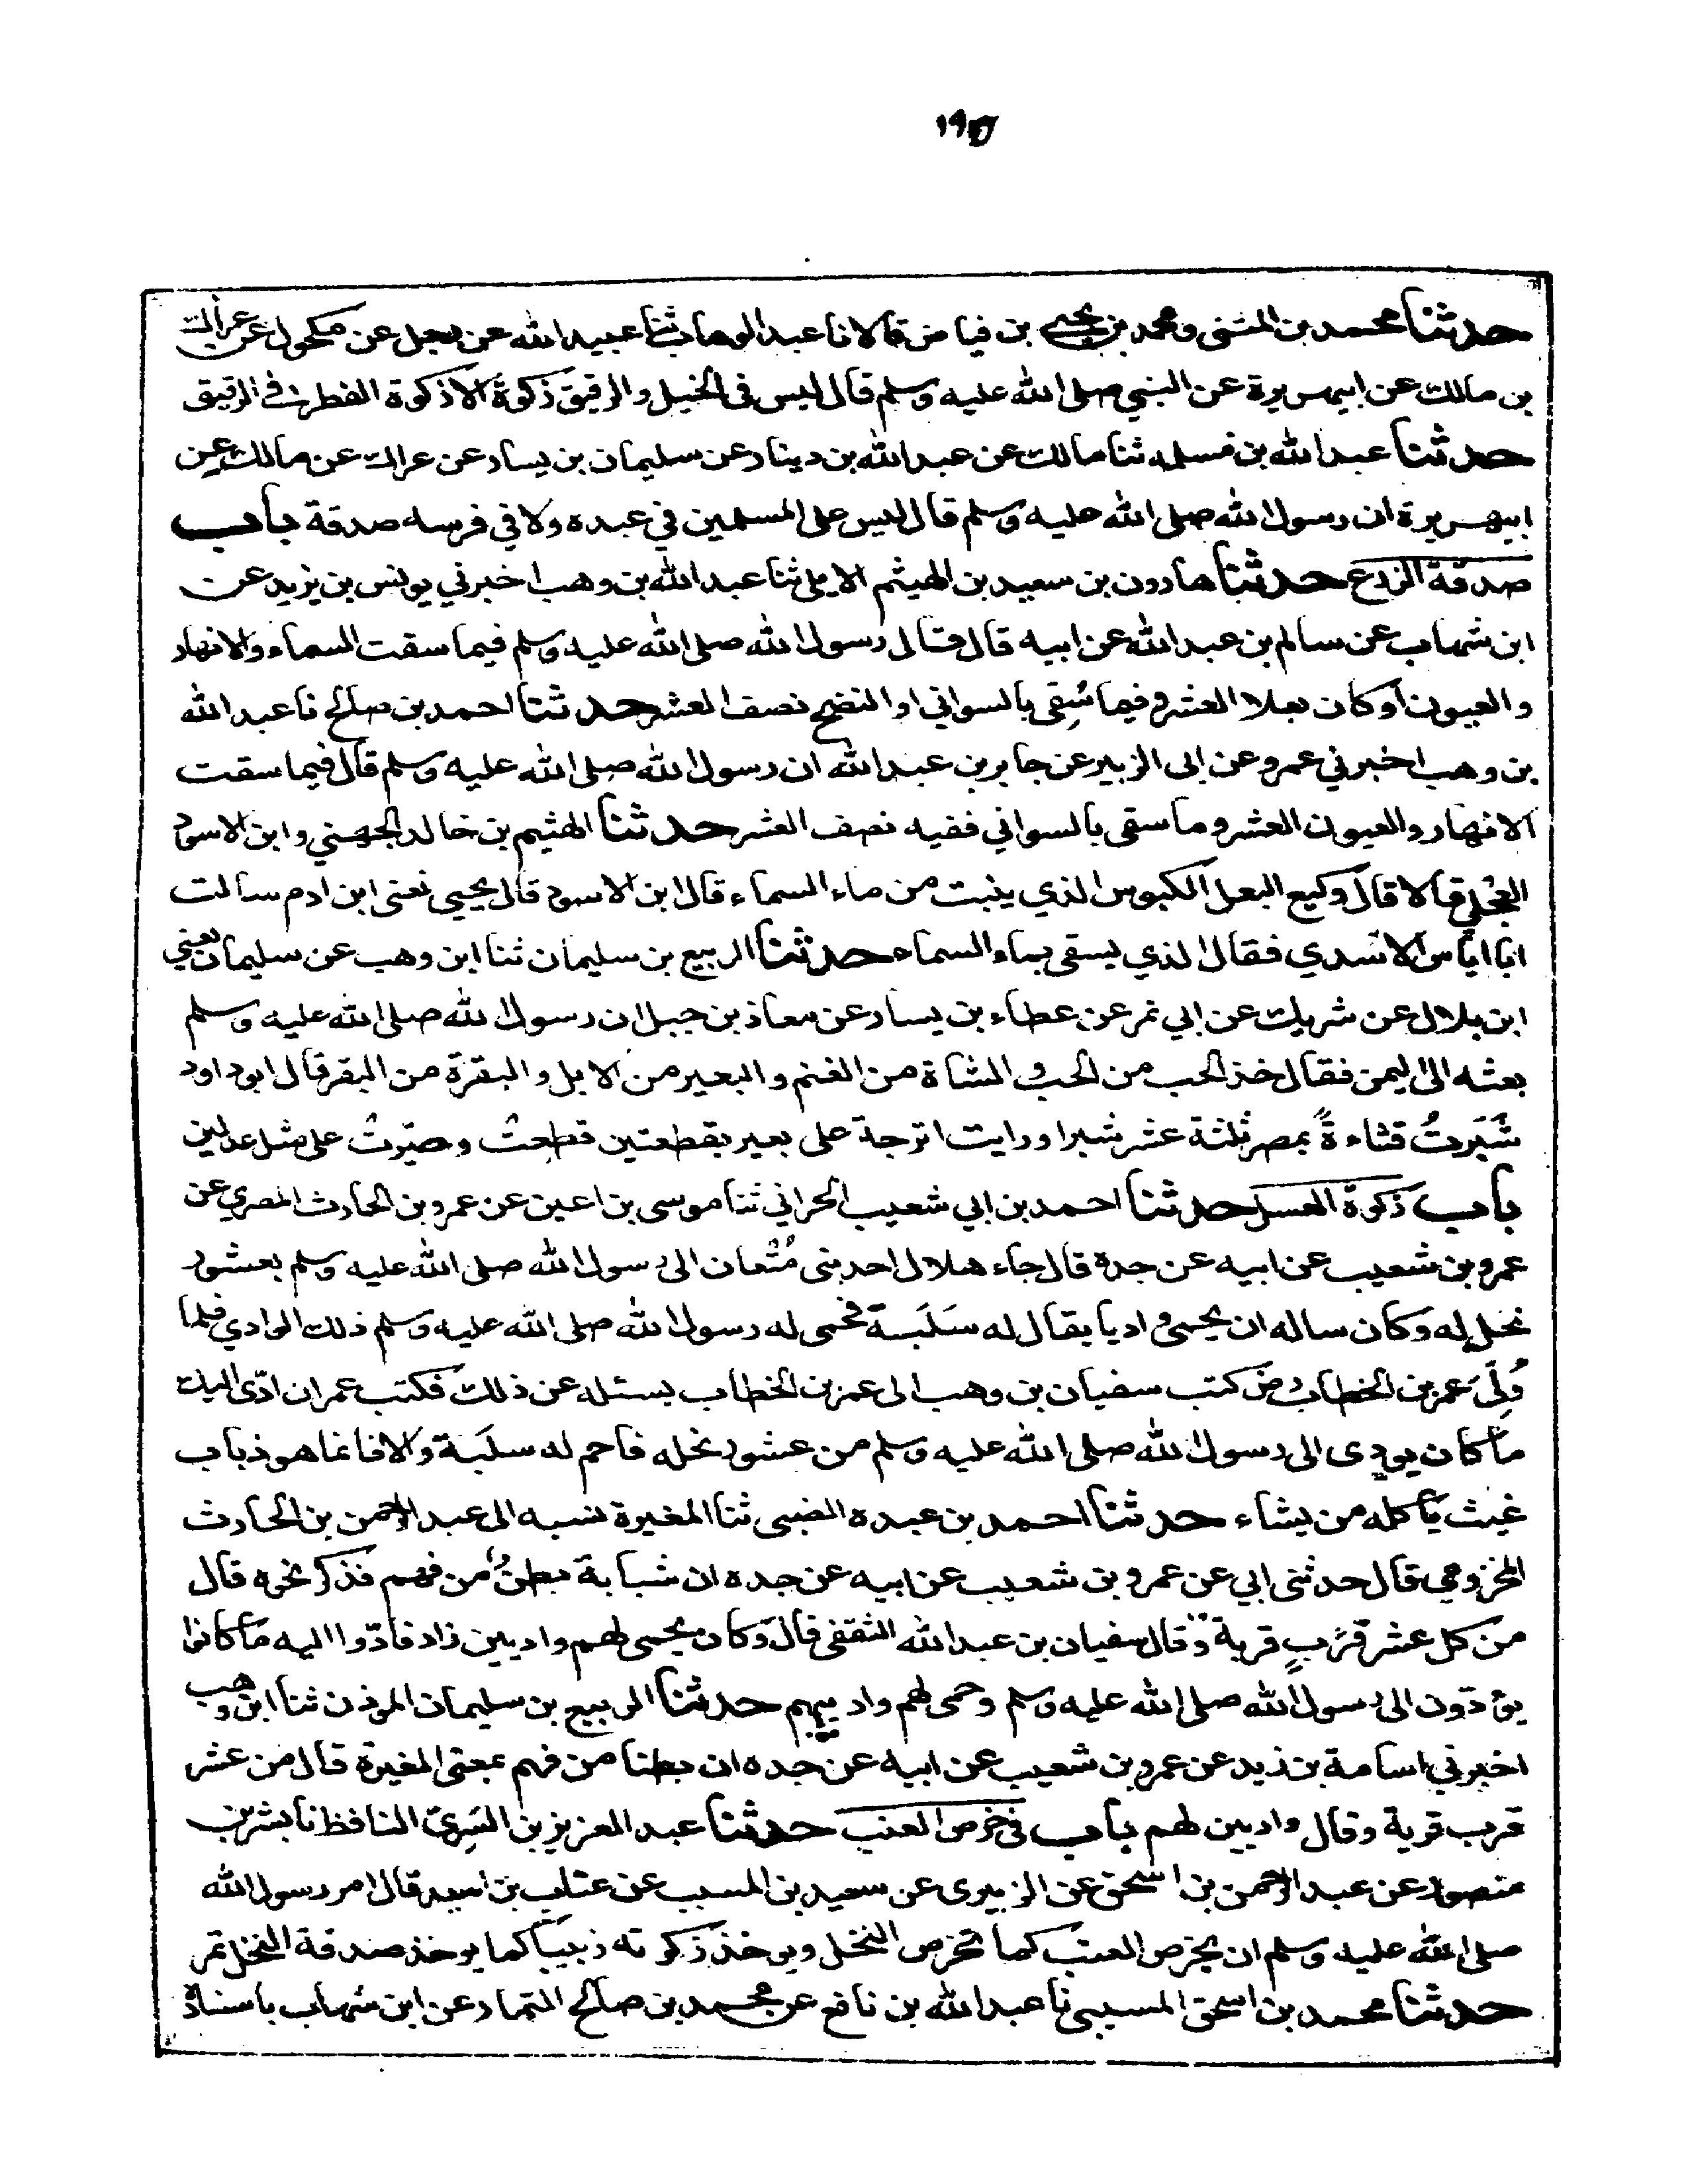 ١٩٥
حدثنا محمد بن المثنى ومحمد بن يحيى بن فياض قالا نا عبد الوهاب ثنا عبيد الله عن رجل عن مكحول عن عراك
بن مالك عن ابيهريرة عن النبي صلى الله عليه وسلم قال ليس في الخيل والرقيق زكوة الا زكوة الفطر في الرقيق
حدثنا عبد الله بن مسلمه ثنا مالك عن عبد الله بن دينار عن سليمان بن يسار عن عراك عن مالك عن
ابيهريرة ان رسول الله صلى الله عليه وسلم قال ليس على المسلمين في عبده ولا في فرسه صدقة باب
صدقة الزرع حدثنا هارون بن سعيد بن الهيثم الايلي ثنا عبد الله بن وهب اخبرني يونس بن يزيد عن
ابن شهاب عن سالم بن عبد الله عن ابيه قال قال رسول الله صلى الله عليه وسلم فيما سقت السماء والانهار
والعيون او كان بعلا العشر وفيما سُقِى بالسواني او النضح نصف العشر حدثنا احمد بن صالح نا عبد الله
بن وهب اخبرني عمرو عن ابي الزبير عن جابر بن عبد الله ان رسول الله صلى الله عليه وسلم قال فيما سقت
الانهار والعيون العشر وما سقى بالسواني ففيه نصف العشر حدثنا الهثيم بن خالد الجهني وابن الاسود
العجلي قالا قال وكيع البعل الكبوس الذي ينبت من ماء السماء قال ابن الاسود قال يحيى نعنى ابن ادم سالت
ابا اياس الاسدي فقال الذي يسقى بماء السماء حدثنا الربيع بن سليمان ثنا ابن وهب عن سليمان يعني
ابن بلال عن شريك عن ابي نمر عن عطاء بن يسار عن معاذ بن جبل ان رسول الله صلى الله عليه وسلم
بعثه الى اليمن فقال خذ الحب من الحب والشاة من الغنم والبعير من الابل والبقرة من البقر قال ابو داود
شَبَرتُ قثاءةً بمصر ثلثة عشر شبرا ورايت اترجة على بعير بقطعتين قطعتْ وصيّرتْ على مثل عدلين
باب زكوة العسل حدثنا احمد بن ابي شعيب الحراني ثنا موسى بن اعين عن عمرو بن الحارث المصري عن
عمرو بن شعيب عن ابيه عن جدة قال جاء هلال احد بنى مُتْعان الى رسول الله صلى الله عليه وسلم بعشور
نحل له وكان ساله ان يحمى واديا يقال له سَلَبة فحمى له رسول الله صلى الله عليه وسلم ذلك الوادي فلما
وُلِّيَ عمر بن الخطاب رض كتب سفيان بن وهب الى عمر بن الخطاب يسئله عن ذلك فكتب عمر ان ادّى اليك
ما كان يودى الى رسول الله صلى الله عليه وسلم من عشور نحله فاحم له سلبة والا فانما هو ذباب
غيث ياكله من يشاء حدثنا احمد بن عبده الضبى ثنا المغيرة نسبه الى عبد الرحمن بن الحارث
المخزومي قال حدثنى ابي عن عمرو بن شعيب عن ابيه عن جده ان شبابة بطنٌ من فهم فذكر نحوه قال
من كل عشر قِرَبٍ قربة وقال سفيان بن عبد الله الثقفى قال وكان يحمى لهم واديين زاد فادّوا اليه ما كانوا
يؤدّون الى رسول الله صلى الله عليه وسلم وحمى لهم واديهم حدثنا الربيع بن سليمان الموذن ثنا ابن وهب
اخبرني اسامة بن زيد عن عمرو بن شعيب عن ابيه عن جده ان بطنا من فهم بمعنى المغيرة قال من عشر
قرب قربة وقال واديين لهم باب في خرص العنب حدثنا عبد العزيز بن السَرِيّ النافظ نا بشر بن
منصور عن عبد الرحمن بن اسحق عن الزبيرى عن سعيد بن المسيب عن عتاب بن اسيد قال امر رسول الله
صلى الله عليه وسلم ان يخرص العنب كما تخرص النخل ويوخذ زكوته زبيبا كما يوخذ صدقة النخل تمر
حدثنا محمد بن اسحق المسيبى نا عبد الله بن نافع عن محمد بن صالح التمار عن ابن شهاب باسناده